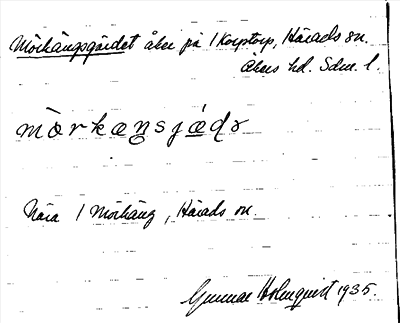 Mörhängsgärdet åker på 1 Korptorp, Härads sn.
Åkers hd. Sdm. l.
mòrkæŋsjæ̀ḍə
Nära 1 Mörhäng, Härads sn.
Gunnar Holmquist 1935.